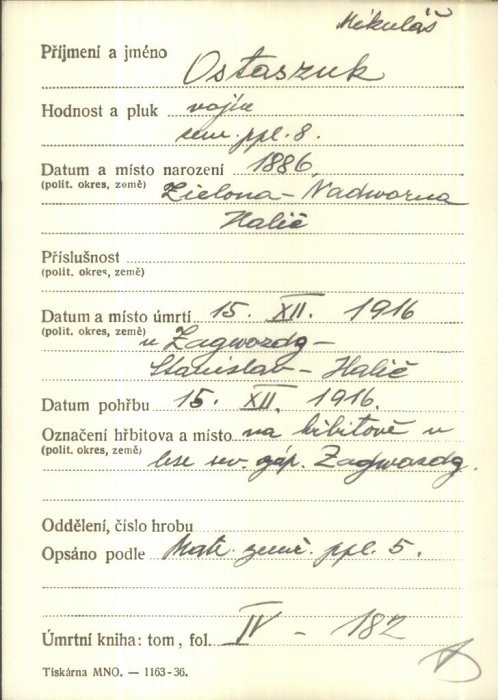 Mikuláš
Příjmení a jméno Ostaszuk
Hodnost a pluk vojín
zem. ppl. 8.
Datum a místo narození 1886,
(polit. okres, země) Zielona - Nadworna
Halič
Příslušnost
(polit. okres, země)
Datum a místo úmrtí 15. XII. 1916
(polit. okres, země) u Zagwozdg -
Stanislav - Halič
Datum pohřbu 15. XII. 1916.
Označení hřbitova a místo na hřbitově v
(polit. okres, země) lese sev. záp. Zagwozdg.
Oddělení, číslo hrobu
Opsáno podle Matr. zemř. ppl. 5.
Úmrtní kniha: tom, fol. IV - 182
Tiskárna MNO. — 1163-36.